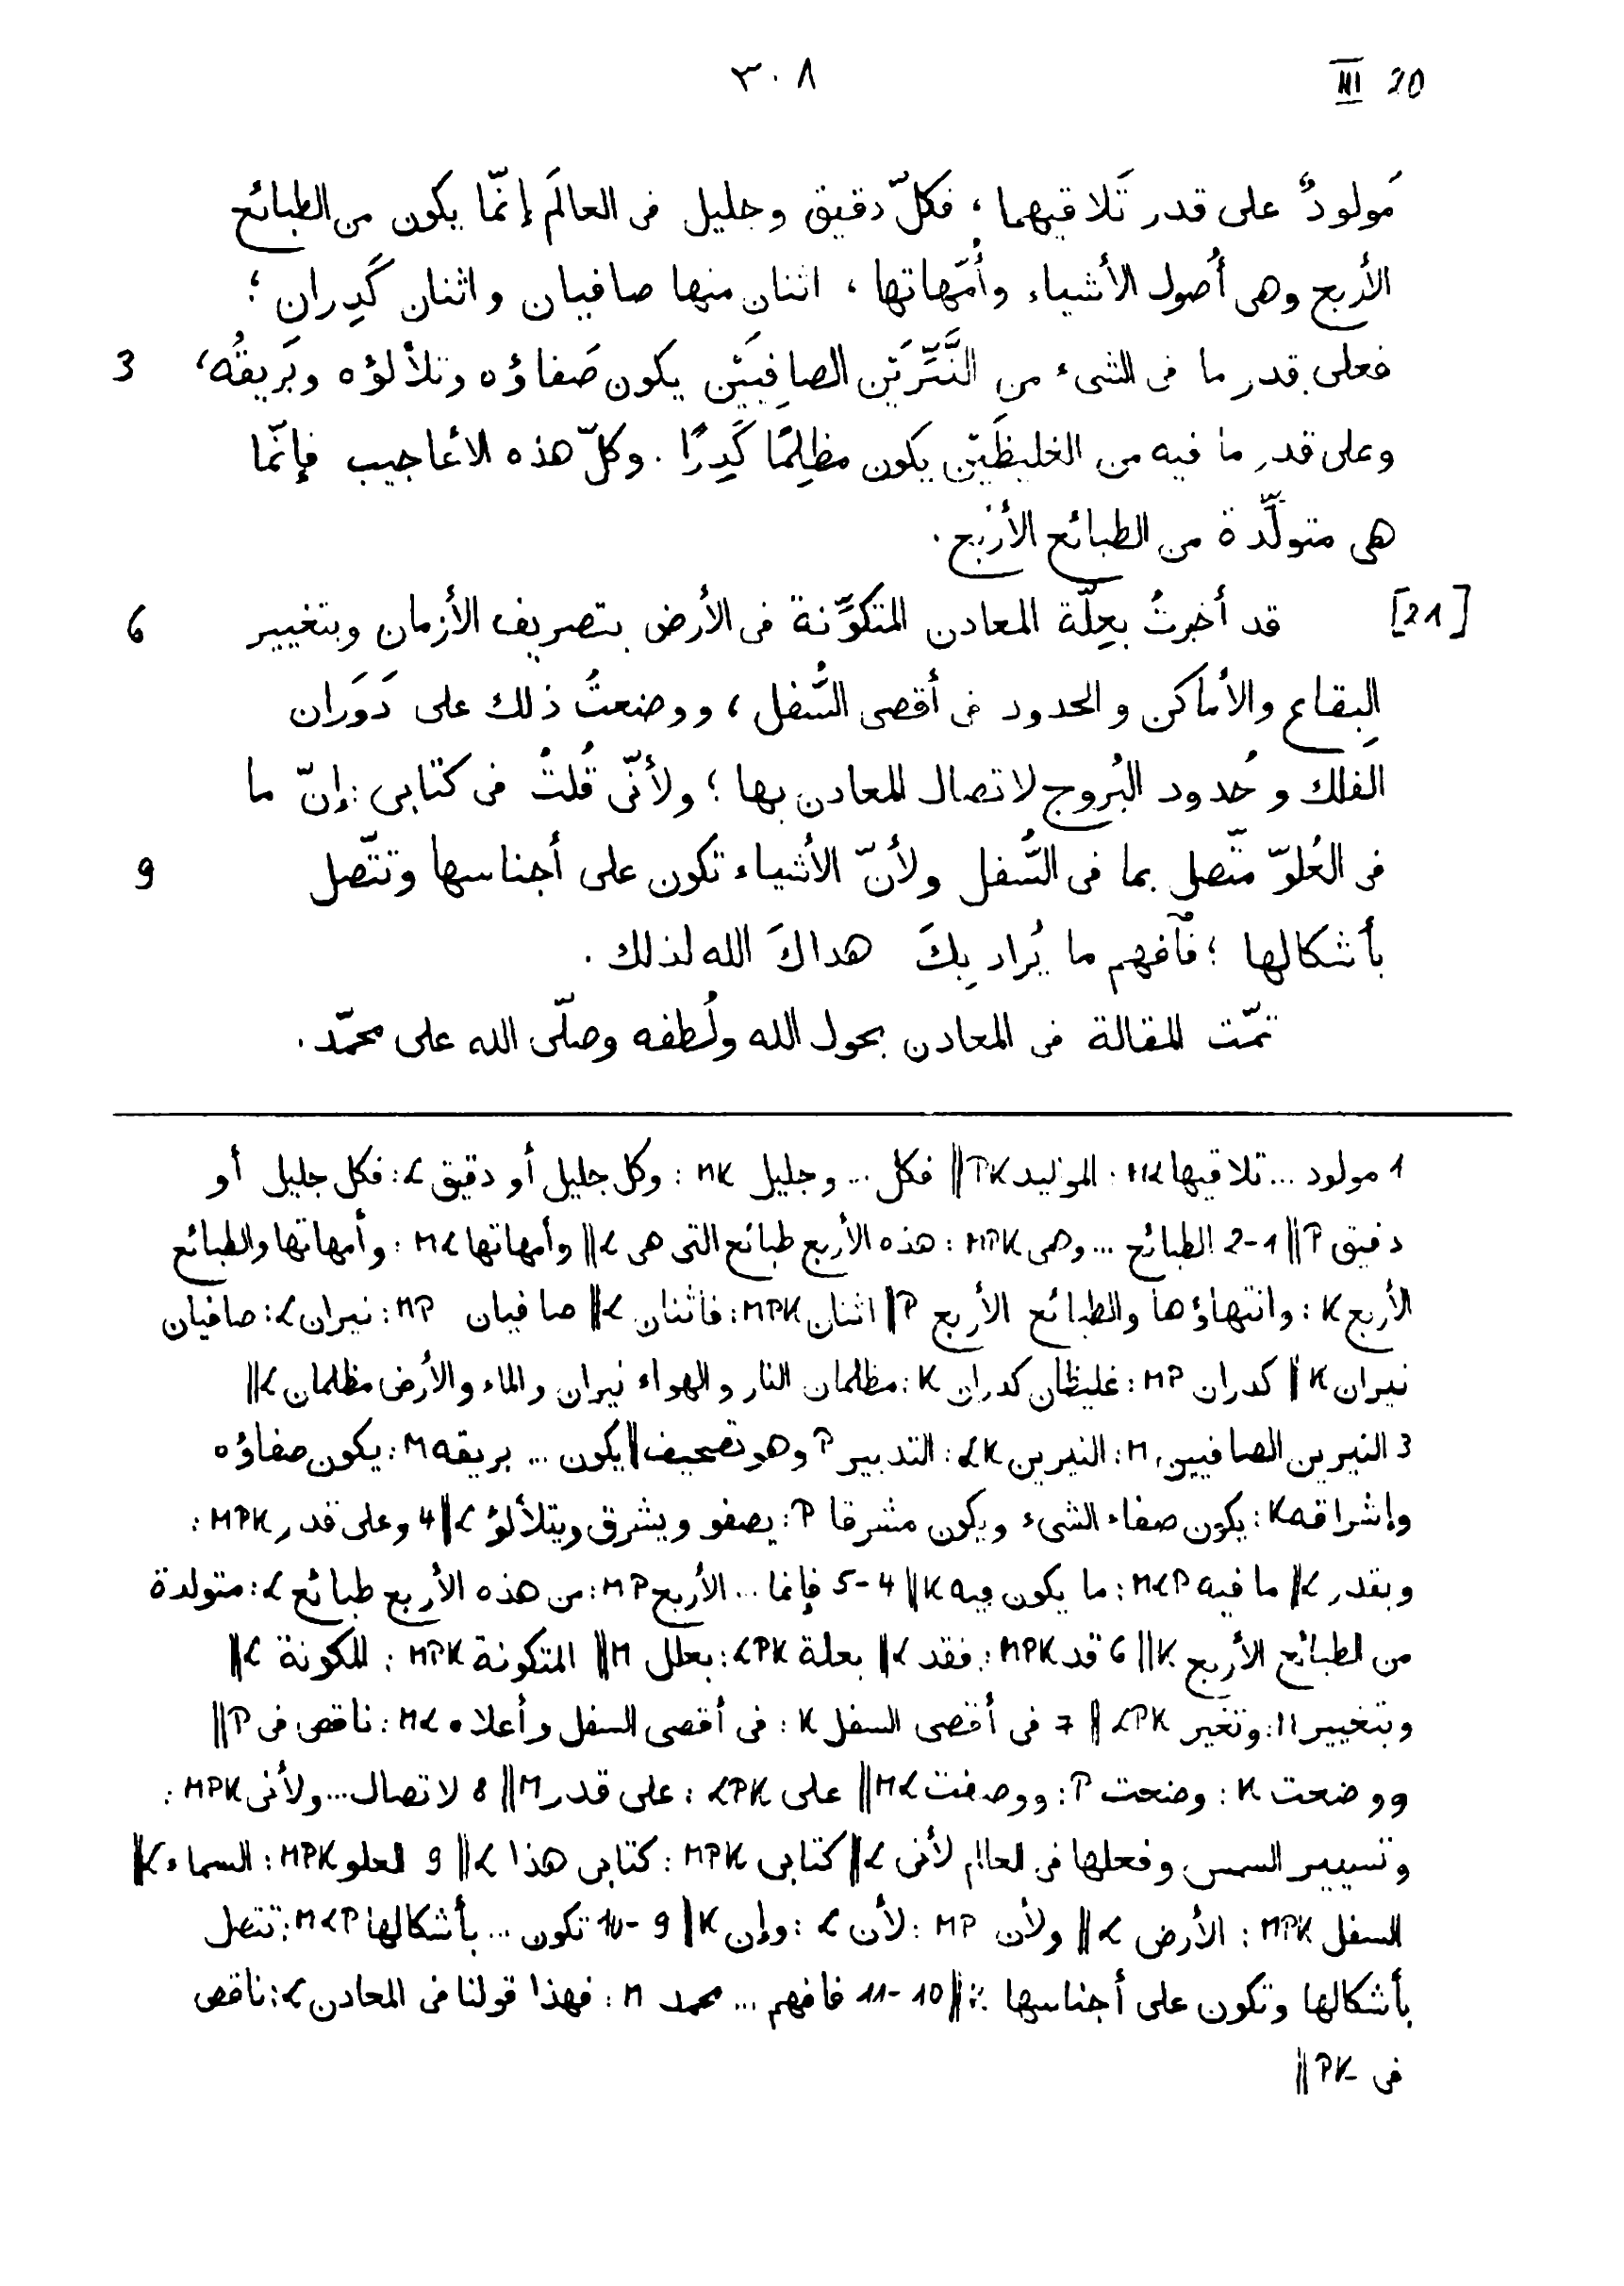 III 20 ٣٠٨
مَولودٌ على قدر تَلاقيهما ، فكلّ دقيق وجليل فى العالَم إنّما يكون من الطبائع
الأربع وهى أُصول الأشياء وأُمّهاتها ، اثنان منها صافيان واثنان كَدِران ؛
فعلى قدر ما فى الشىء من النَّيِّرَيْن الصافِيَيْن يكون صَفاؤه وتلألؤه وبَريقُه ، 3
وعلى قدر ما فيه من الغليظَيْن يكون مظلِمًا كَدِرًا . وكلّ هذه الأعاجيب فإنّما
هى متولِّدة من الطبائع الأربع .
[21] قد أخبرتُ بعِلّة المعادن المتكوِّنة فى الأرض بتصريف الأزمان وبتغيير 6
البِقاع والأماكن والحدود فى أقصى السُّفل ، ووضعتُ ذلك على دَوَران
الفلك وحُدود البُروج لاتصال المعادن بها ؛ ولأنّى قُلتُ فى كتابى : إنّ ما
فى العُلوّ متّصل بما فى السُّفل ولأنّ الأشياء تكون على أجناسها وتتّصل 9
بأشكالها ؛ فٱفهم ما يُراد بِكَ هداكَ الله لذلك .
تمّت المقالة فى المعادن بحول الله ولُطفه وصلّى الله على محمّد .
1 مولود ... تلاقيها : المواليد PK || فكل ... وجليل MK : وكل جليل أو دقيق L : فكل جليل أو
دقيق P || 1-2 الطبائع ... وهى MPK : هذه الأربع طبائع التى هى L || وأمهاتها ML : وأمهاتها والطبائع
الأربع K : وانتهاؤها والطبائع الأربع P || اثنان MPK : فاثنان L || صافيان MP : نيران L : صافيان
نيران K || كدران MP : غليظان كدران K : مظلمان النار والهواء نيران والماء والأرض مظلمان L ||
3 النيرين الصافيين M : النيرين LK : التدبير P وهو تصحيف || يكون ... بريقه M : يكون صفاؤه
وإشراقه K : يكون صفاء الشىء ويكون مشرقا P : يصفو ويشرق ويتلألؤ L || 4 وعلى قدر MPK :
وبقدر L || ما فيه MLP : ما يكون فيه K || 4-5 فإنما ... الأربع MP : من هذه الأربع طبائع L : متولدة
من الطبائع الأربع K || 6 قد MPK : فقد L || بعلة LPK : بعلل M || المتكونة MPK : المكونة L ||
وبتغيير M : وتغير LPK || 7 فى أقصى السفل K : فى أقصى السفل وأعلاه ML : ناقص فى P ||
ووضعت K : وضعت P : ووصفت ML || على LPK : على قدر M || 8 لاتصال ... ولأنى MPK :
وتسيير الشمس وفعلها فى العالم لأنى L || كتابى MPK : كتابى هذا L || 9 العلو MPK : السماء L ||
السفل MPK : الأرض L || ولأن MP : لأن L : وإن K || 9-10 تكون ... بأشكالها MLP : تتصل
بأشكالها وتكون على أجناسها K || 10-11 فافهم ... محمد M : فهذا قولنا فى المعادن L : ناقص
فى PK ||